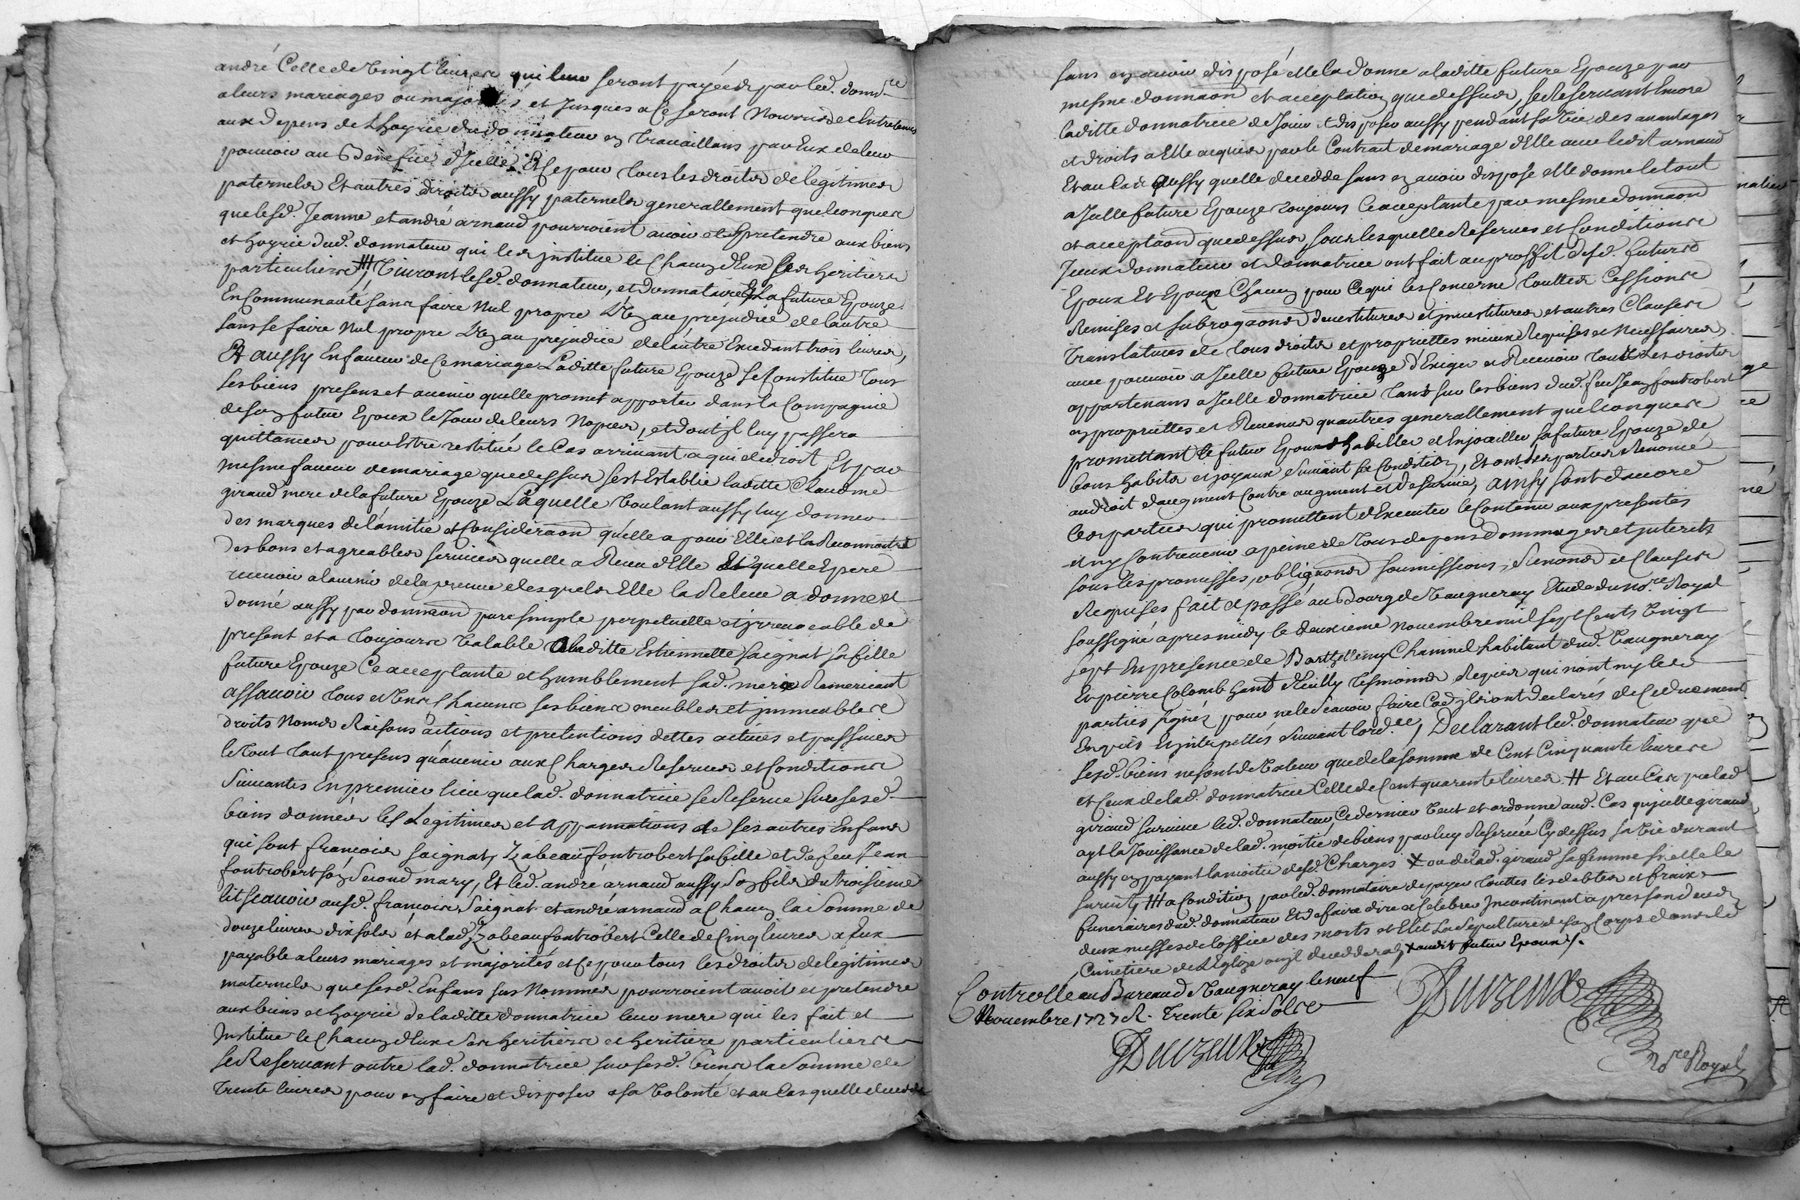 andré Celle de Vingt livres qui leur seront payées par led. donn.re
a leurs mariages ou majorités et Jusques a Ce seront Nourris et Entretenus
aux depens de l hoyrie du donnateur en travaillans par Eux de leur
pouvoir au Benefice d'Icelle Et Ce pour tous les droits de legitimes
paternels Et autres droits aussy paternels generallement quelconques
que lesd. Jeanne et andré arnaud pourroient avoir et pretendre aux biens
et hoyrie dud. donnateur qui les institue le Chacun d'Eux ses heritiers
particuliers Vivront lesd. donnateur, et donnataire Et la future Epouze
En Communauté sans faire Nul propre au prejudice de lautre
sans se faire Nul propre au prejudice de lautre Excedant trois livres,
Et aussy En faveur de Ce mariage Laditte future Epouze se Constitue Tous
ses biens presens et avenir quelle promet apporter dans la Compagnie
de son futur Epoux le Jour de leurs Nopces, et dont Il luy passera
quittances pour Estre restitué le Cas arrivant a qui de droit, Et par
mesme faveur de mariage que dessus sest Establie laditte Claudine
giraud mere de la future Epouze Laquelle Voulant aussy luy donner
des marques de l'amitié et Consideraon quelle a pour Elle et la Reconnoitre
des bons et agreables services quelle a Receu d'Elle Et quelle Espere
recevoir a lavenir de la preuve desquels Elle la Releve a donné et
donné aussy par donnaon pure simple perpetuelle et irrevocable de
present et a toujours Valable a laditte Estiennette Saignat sa fille
future Epouze Ce acceptante et humblement sad. mere Remerciant
assavoir tous et Uns Chacuns ses biens meubles et immeubles
droits Noms Raisons actions et pretentions dettes actives et passives
le tout tant presens qu'avenir aux Charges Reserves et Conditions
Suivantes En premier lieu que lad. donnatrice se Reserve sur sesd.
biens donnés les Legitimes et appanations de ses autres Enfans
qui sont francois Saignat, Izabeau fontrobert sa fille et de feu Jean
fontrobert son second mary, Et led. andré arnaud aussy son fils du troisieme
lit scavoir ausd. francois Saignat et andré arnaud a Chacun la Somme de
douze livres dix sols et a lad. Izabeau fontrobert Celle de Cinq livres a Eux
payable a leurs mariages et majorités et Ce pour tous les droits de legitimes
maternels que sesd. Enfans sus Nommés pourroient avoir et pretendre
aux biens et hoyrie de laditte donnatrice leur mere qui les fait et
Institue le Chacun d'Eux ses heritiers et heritiere particuliers
se Reservant outre lad. donnatrice sur sesd. biens la Somme de
trente livres pour en faire et disposer a sa Volonté et au Cas quelle decede
sans en avoir disposé elle la donne a laditte future Epouze par
mesme donnaon et acceptation que dessus, se Reservant Encore
laditte donnatrice de Jouir et disposer aussy pendant sa vie des avantages
et droits a Elle acquis par le Contrat de mariage d'Elle avec ledit arnaud
Et au Cas aussy quelle decede sans en avoir disposé elle donne le tout
a Icelle future Epouze toujours Ce acceptante par mesme donnaon
et acceptaon que dessus sous lesquelle Reserves et Conditions
Iceux donnateur et donnatrice ont fait au proffit desd. futurs
Epoux Et Epouze Chacun pour Ce qui les Concerne touttes Cessions
Remises et subrogaons devestitures et investitures et autres Clauses
translatives de tous droits et proprietés mieux Requises et Necessaires
avec pouvoir a Icelle future Epouze d'Exiger et Recevoir tous les droits
appartenans a Icelle donnatrice tant sur les biens dud. feu Jean fontrobert
en proprietés et Revenus qu'autres generallement quelconques
promettant le futur Epoux d habiller et Enjoailler sa future Epouze de
bons habits et joyaux suivant sa Condition, Et ont les parties Renoncé
au droit d augment Contre augment et de survie, ainsy sont d'accord
les parties qui promettent d'Executer le Contenu aux presentes
et n'y Contrevenir a peine de tous depens dommages et interets
sous les promesses, obligaons soumissions, Renonc. et Clauses
Requises fait et passé au Bourg de Vaugneray Etude du No.re Royal
soussigné apres midy le deuxieme novembre mil sept Cents Vingt
sept En presence de Barthellemy Chainel habitant dud. Vaugneray
Et pierre Colomb de Reuilly tesmoins Requis qui n'ont ny les
parties signés pour ne le scavoir faire Co.e Ils ont declarés de Ce duement
Enquis et Interpellés suivant lord.ce, Declarant led. donnateur que
sesd. biens ne sont de Valeur que de la somme de Cent Cinquante livres
et Ceux de lad. donnatrice Celle de Cent quarente livres # Et au Cas que lad.
giraud survive led. donnateur, Ce dernier Veut et ordonne aud. Cas qu'icelle giraud
ayt la Jouissance de lad. moitié de biens par luy Reservée Cy dessus sa vie durant
aussy en payant la moitié desd. Charges X ou de lad. giraud sa femme si elle le
survit, # a Condition par led. donnataire de payer touttes les debtes et fraix
funeraires dud. donnateur Et de faire dire et Celebrer Incontinant apres son deced
deux messes de l'office des morts et Elit La Sepulture de son Corps dans le
Cimetiere de l'Eglize ou Il decedera X audit futur Epoux /.
Controllé au Bureau d Vaugneray le neuf
Novembre 1727 R. trente six sols
Duvzeux
Duvzeux
No.re Royal